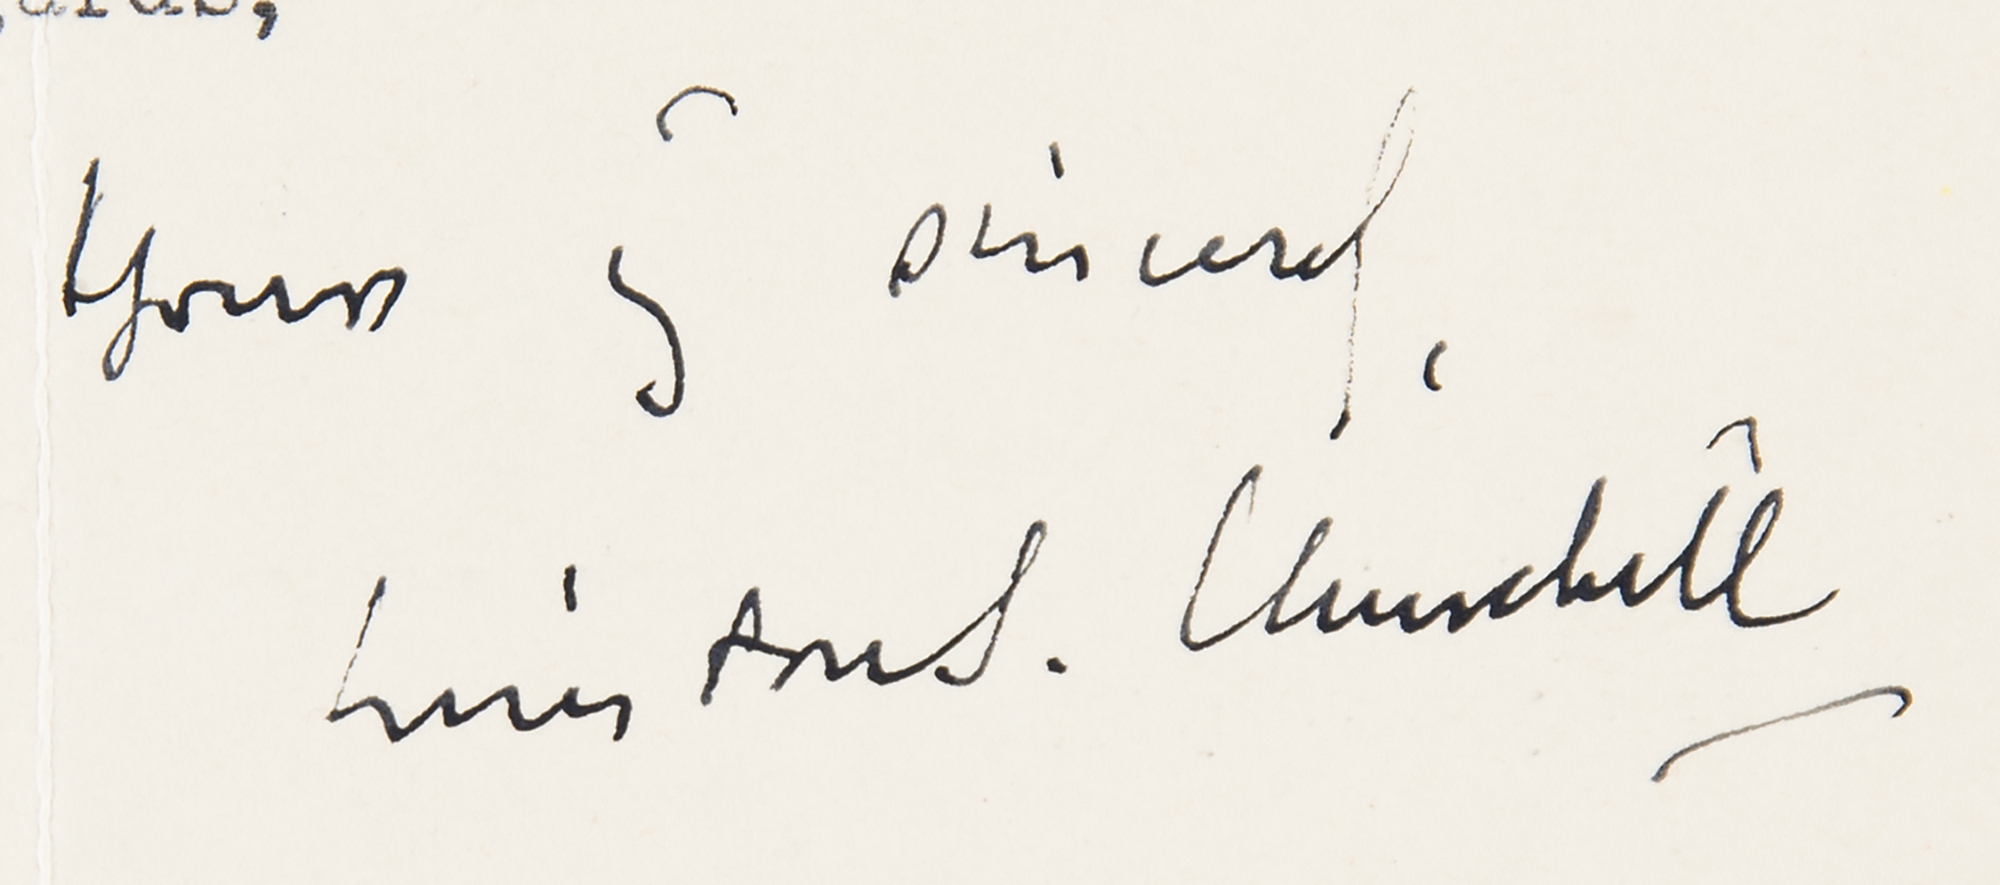 Yours
sincerely,
Winston S. Churchill